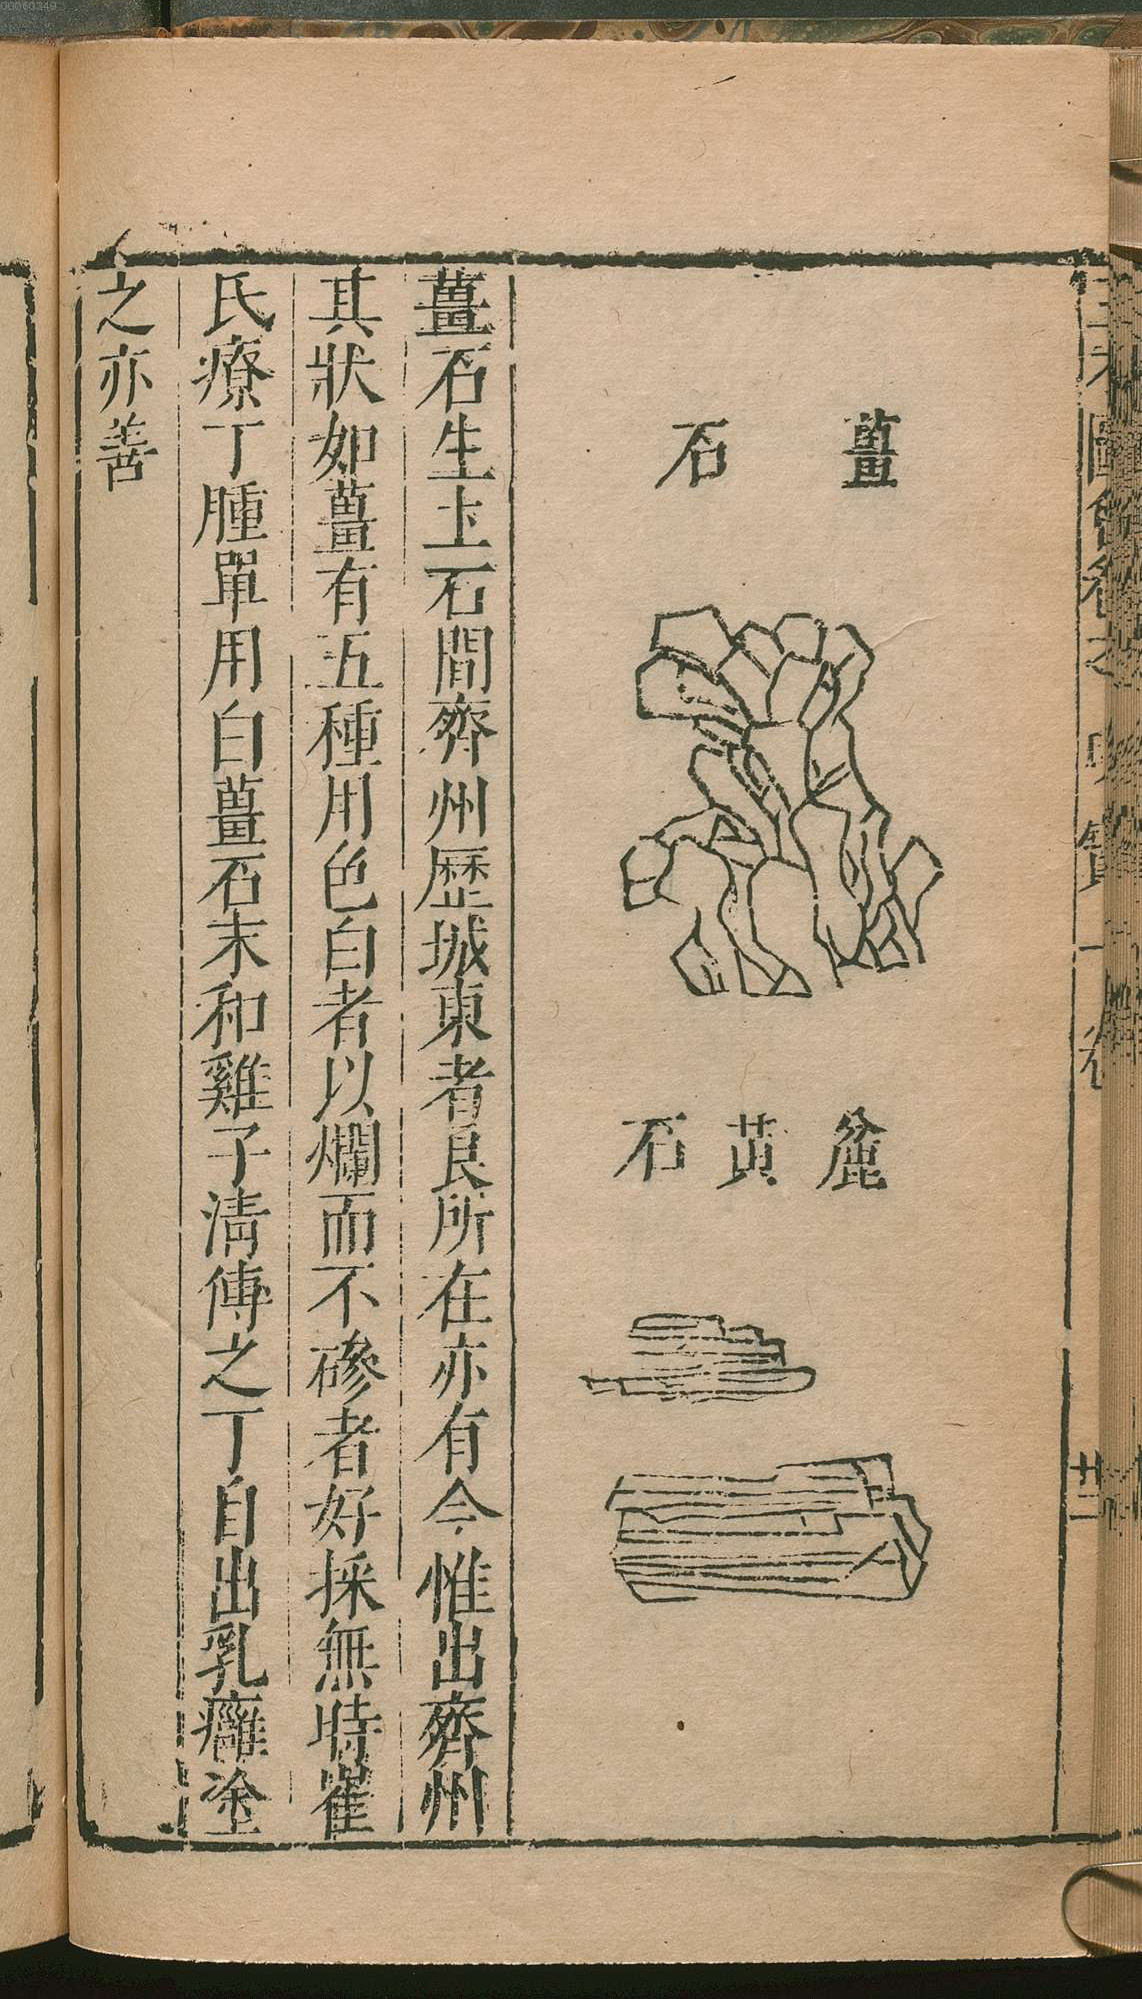 薑石
麄黃石
薑石生土石間齊州歷城東者良所在亦有今惟出齊州
其狀如薑有五種用色白者以爛而不磣者好採無時崔
氏療丁腫單用白薑石末和雞子清傅之丁自出乳癰塗
之亦善
廿二
00060349